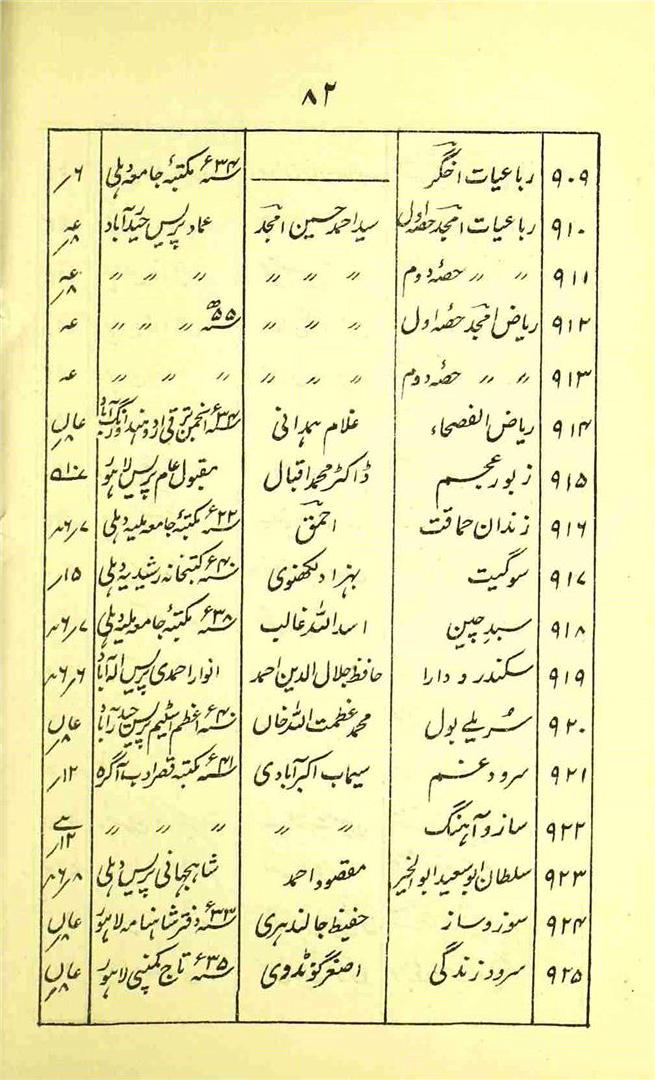 ۸۲
۹۰۹ رباعیات اخگر ——— ۳۴ء مکتبۂ جامعہ دہلی ۶ر
۹۱۰ رباعیات امجد حصہ اول سید احمد حسین امجد عماد پریس حیدرآباد عہ ۸ر
۹۱۱ 〃 〃 حصہ دوم 〃 〃 〃 〃 〃 〃 عہ ۸ر
۹۱۲ ریاض امجد حصہ اول 〃 〃 〃 ۵۵ھ 〃 〃 〃 عہ
۹۱۳ 〃 〃 حصہ دوم 〃 〃 〃 〃 〃 〃 〃 عہ
۹۱۴ ریاض الفصحاء غلام ہمدانی ۳۴ء انجمن ترقی اردو ہند اورنگ آباد
۹۱۵ زبور عجم ڈاکٹر محمد اقبال مقبول عام پریس لاہور
۹۱۶ زندان حماقت احمق ۲۲ء مکتبۂ جامعہ ملیہ دہلی
۹۱۷ سوگیت بہزاد لکھنوی ۴۰ء کتبخانہ رشیدیہ دہلی ۱۵ر
۹۱۸ سبد چین اسد اللہ غالب ۳۸ء مکتبۂ جامعہ ملیہ دہلی
۹۱۹ سکندر و دارا حافظ جلال الدین احمد انوار احمدی پریس الہ آباد
۹۲۰ سریلے بول محمد عظمت اللہ خاں ۴۰ء اعظم اسٹیم پریس حیدرآباد
۹۲۱ سرود غم سیماب اکبرآبادی ۴۱ء مکتبہ قصر ادب آگرہ ۱۲ر
۹۲۲ ساز و آہنگ 〃 〃 〃 〃 〃 ۱۲ر
۹۲۳ سلطان ابو سعید ابو الخیر مقصود احمد شاہجہانی پریس دہلی
۹۲۴ سوز و ساز حفیظ جالندہری ۳۳ء دفتر شاہنامہ لاہور
۹۲۵ سرود زندگی اصغر گونڈوی ۳۵ء تاج کمپنی لاہور